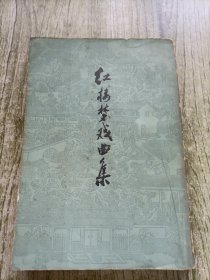 红楼梦戏曲集